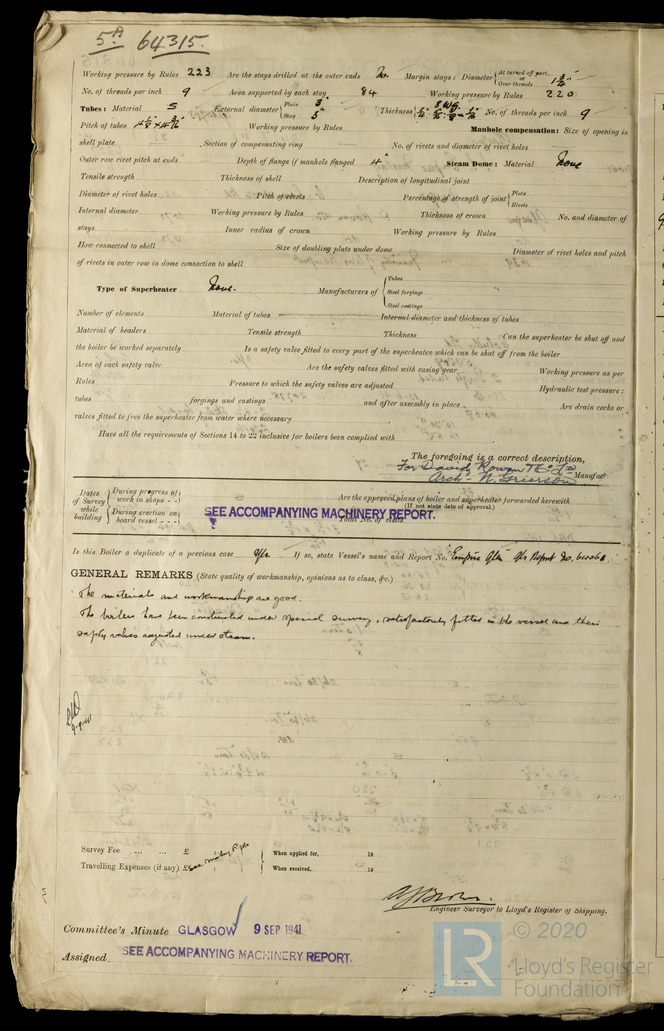 5A 64315.
Working pressure by Rules 223 Are the stays drilled at the outer ends No. Margin stays: Diameter { At turned off part, or Over threads 1 3/4"
No. of threads per inch 9 Area supported by each stay 84 Working pressure by Rules 220
Tubes: Material S External diameter { Plain 3" Stay 3" Thickness { 8 WG. No. of threads per inch 9
Pitch of tubes Working pressure by Rules Manhole compensation: Size of opening in
shell plate Section of compensating ring No. of rivets and diameter of rivet holes
Outer row rivet pitch at ends Depth of flange if manhole flanged 4" Steam Dome: Material None
Tensile strength Thickness of shell Description of longitudinal joint
Diameter of rivet holes Pitch of rivets Percentage of strength of joint { Plate Rivets
Internal diameter Working pressure by Rules Thickness of crown No. and diameter of
stays Inner radius of crown Working pressure by Rules
How connected to shell Size of doubling plate under dome Diameter of rivet holes and pitch
of rivets in outer row in dome connection to shell
Type of Superheater None. Manufacturers of { Tubes Steel forgings Steel castings
Number of elements Material of tubes Internal diameter and thickness of tubes
Material of headers Tensile strength Thickness Can the superheater be shut off and
the boiler be worked separately Is a safety valve fitted to every part of the superheater which can be shut off from the boiler
Area of each safety valve Are the safety valves fitted with easing gear Working pressure as per
Rules Pressure to which the safety valves are adjusted Hydraulic test pressure:
tubes forgings and castings and after assembly in place Are drain cocks or
valves fitted to free the superheater from water where necessary
Have all the requirements of Sections 14 to 22 inclusive for boilers been complied with
The foregoing is a correct description,
For David Rowan & Co Ld
Arch. W. Grierson Manufact
Dates of Survey while building { During progress of work in shops - - } { During erection on board vessel - - - }
Are the approved plans of boiler and superheater forwarded herewith
(If not state date of approval.)
SEE ACCOMPANYING MACHINERY REPORT.
Total No. of visits
Is this Boiler a duplicate of a previous case Yes If so, state Vessel's name and Report No. Empire Glen Gls Report no.
GENERAL REMARKS (State quality of workmanship, opinions as to class, &c.)
The materials and workmanship are good.
The boilers have been constructed under special survey, satisfactorily fitted in the vessel and their
safety valves adjusted under steam.
Survey Fee ... ... £ : : When applied for, 19
Travelling Expenses (if any) £ : : When received, 19
Engineer Surveyor to Lloyd's Register of Shipping.
Committee's Minute GLASGOW 9 SEP 1941
Assigned SEE ACCOMPANYING MACHINERY REPORT.
LR © 2020
Lloyd's Register
Foundation